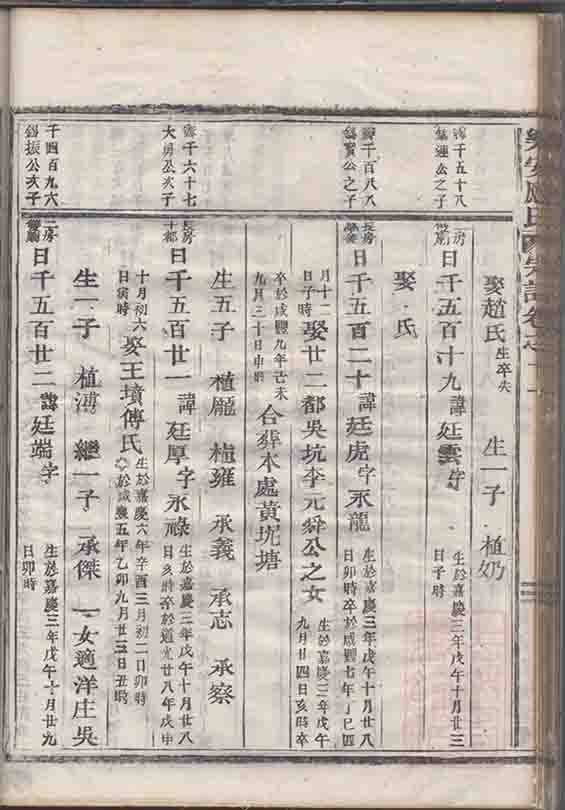 樂安
娶趙氏 生卒失 生一子 植奶
千五十八
公之子
日千五百十九 諱廷雲字 生於嘉慶三年戊午十月廿三
日子時
娶 氏
千百八八
公之子
長房
日千五百二十 諱廷虎字永龍 生於嘉慶三年戊午十月廿八
日卯時卒於咸豐七年丁巳四
月十二
日子時 娶廿二都吳坑李元舜公之女 生於嘉慶三年戊午
九月廿四日亥時卒
卒於咸豐九年己未
九月三十日申時 合葬本處黃坑塘
生五子 植龐 植雍 承義 承志 承察
千六十七
大勇公次子
長房
十都
日千五百廿一 諱廷厚字永祿 生於嘉慶三年戊午十月廿八
日亥時卒於道光廿八年戊申
十月初六
日寅時 娶王墳傅氏 生於嘉慶六年辛酉三月初二日卯時
於咸豐五年乙卯九月廿三日丑時
生一子 植溥 繼一子 承傑 一女適洋庄吳
千四百九六
振公次子
二房
日千五百廿二 諱廷端字 生於嘉慶三年戊午十月廿九
日卯時